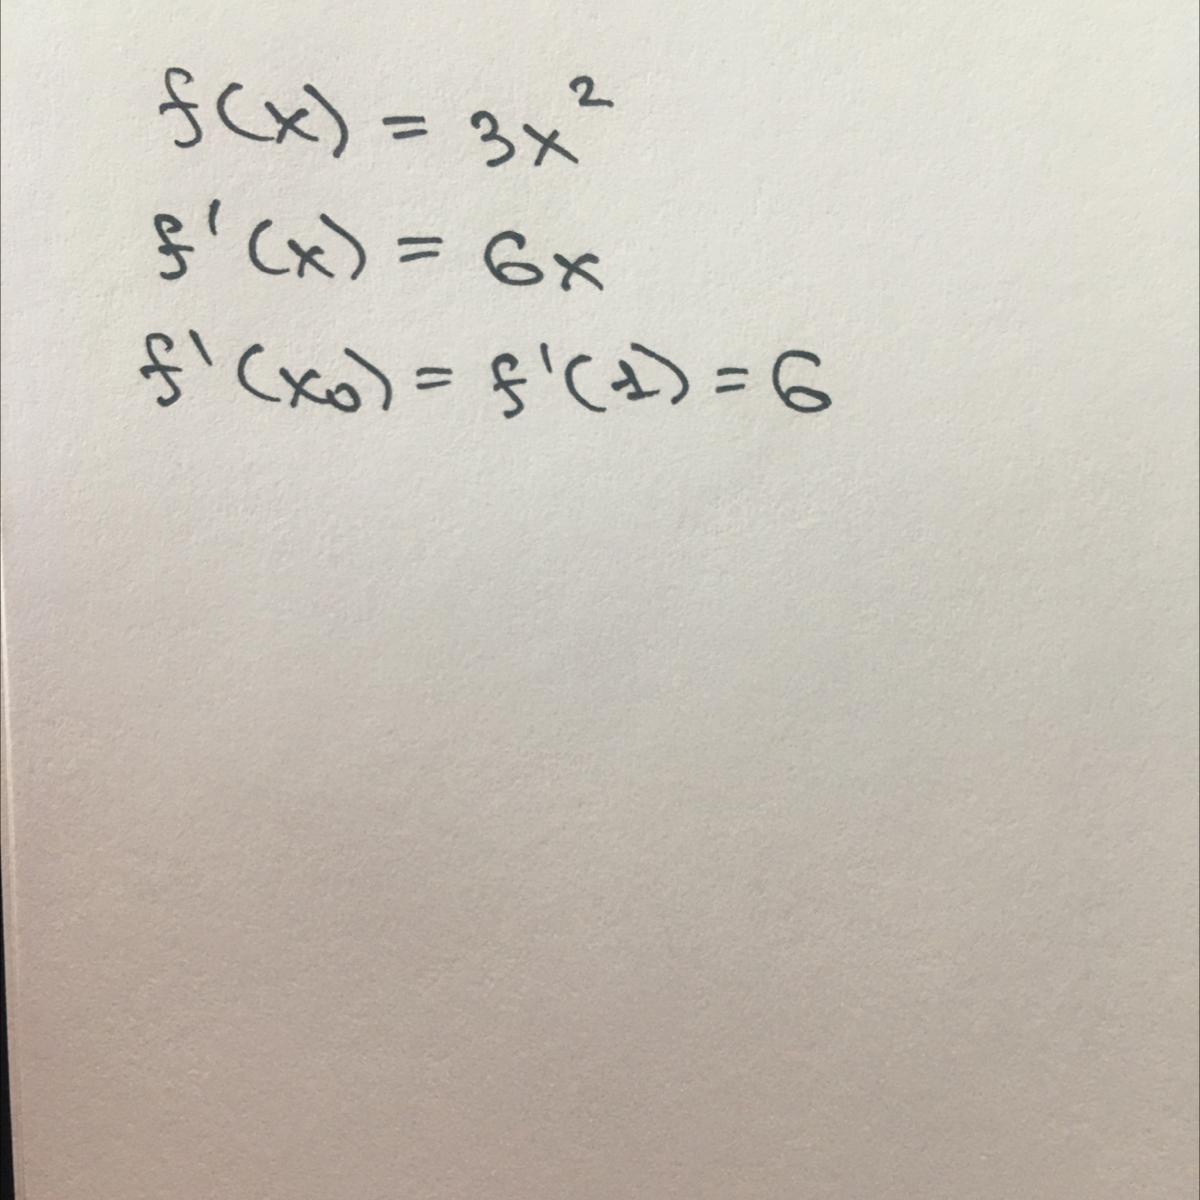 f(x) = 3x²
f'(x) = 6x
f'(x₀) = f'(1) = 6